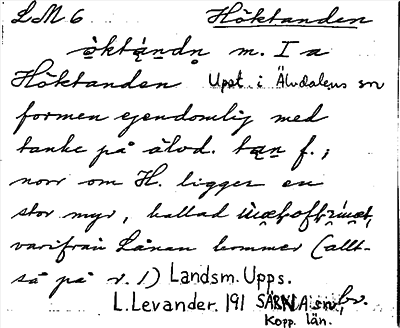 LM 6 Höktanden
òktą́ndn̥ m. I a
Höktanden Uppt. i Älvdalens sn
formen egendomlig med
tanke på älvd. tąn f.;
norr om H. ligger en
stor myr, kallad
varifrån Lånan kommer (allt-
så på v. 1) Landsm. Upps.
L. Levander. 191 SÄRNA sn, br.
Kopp. län.